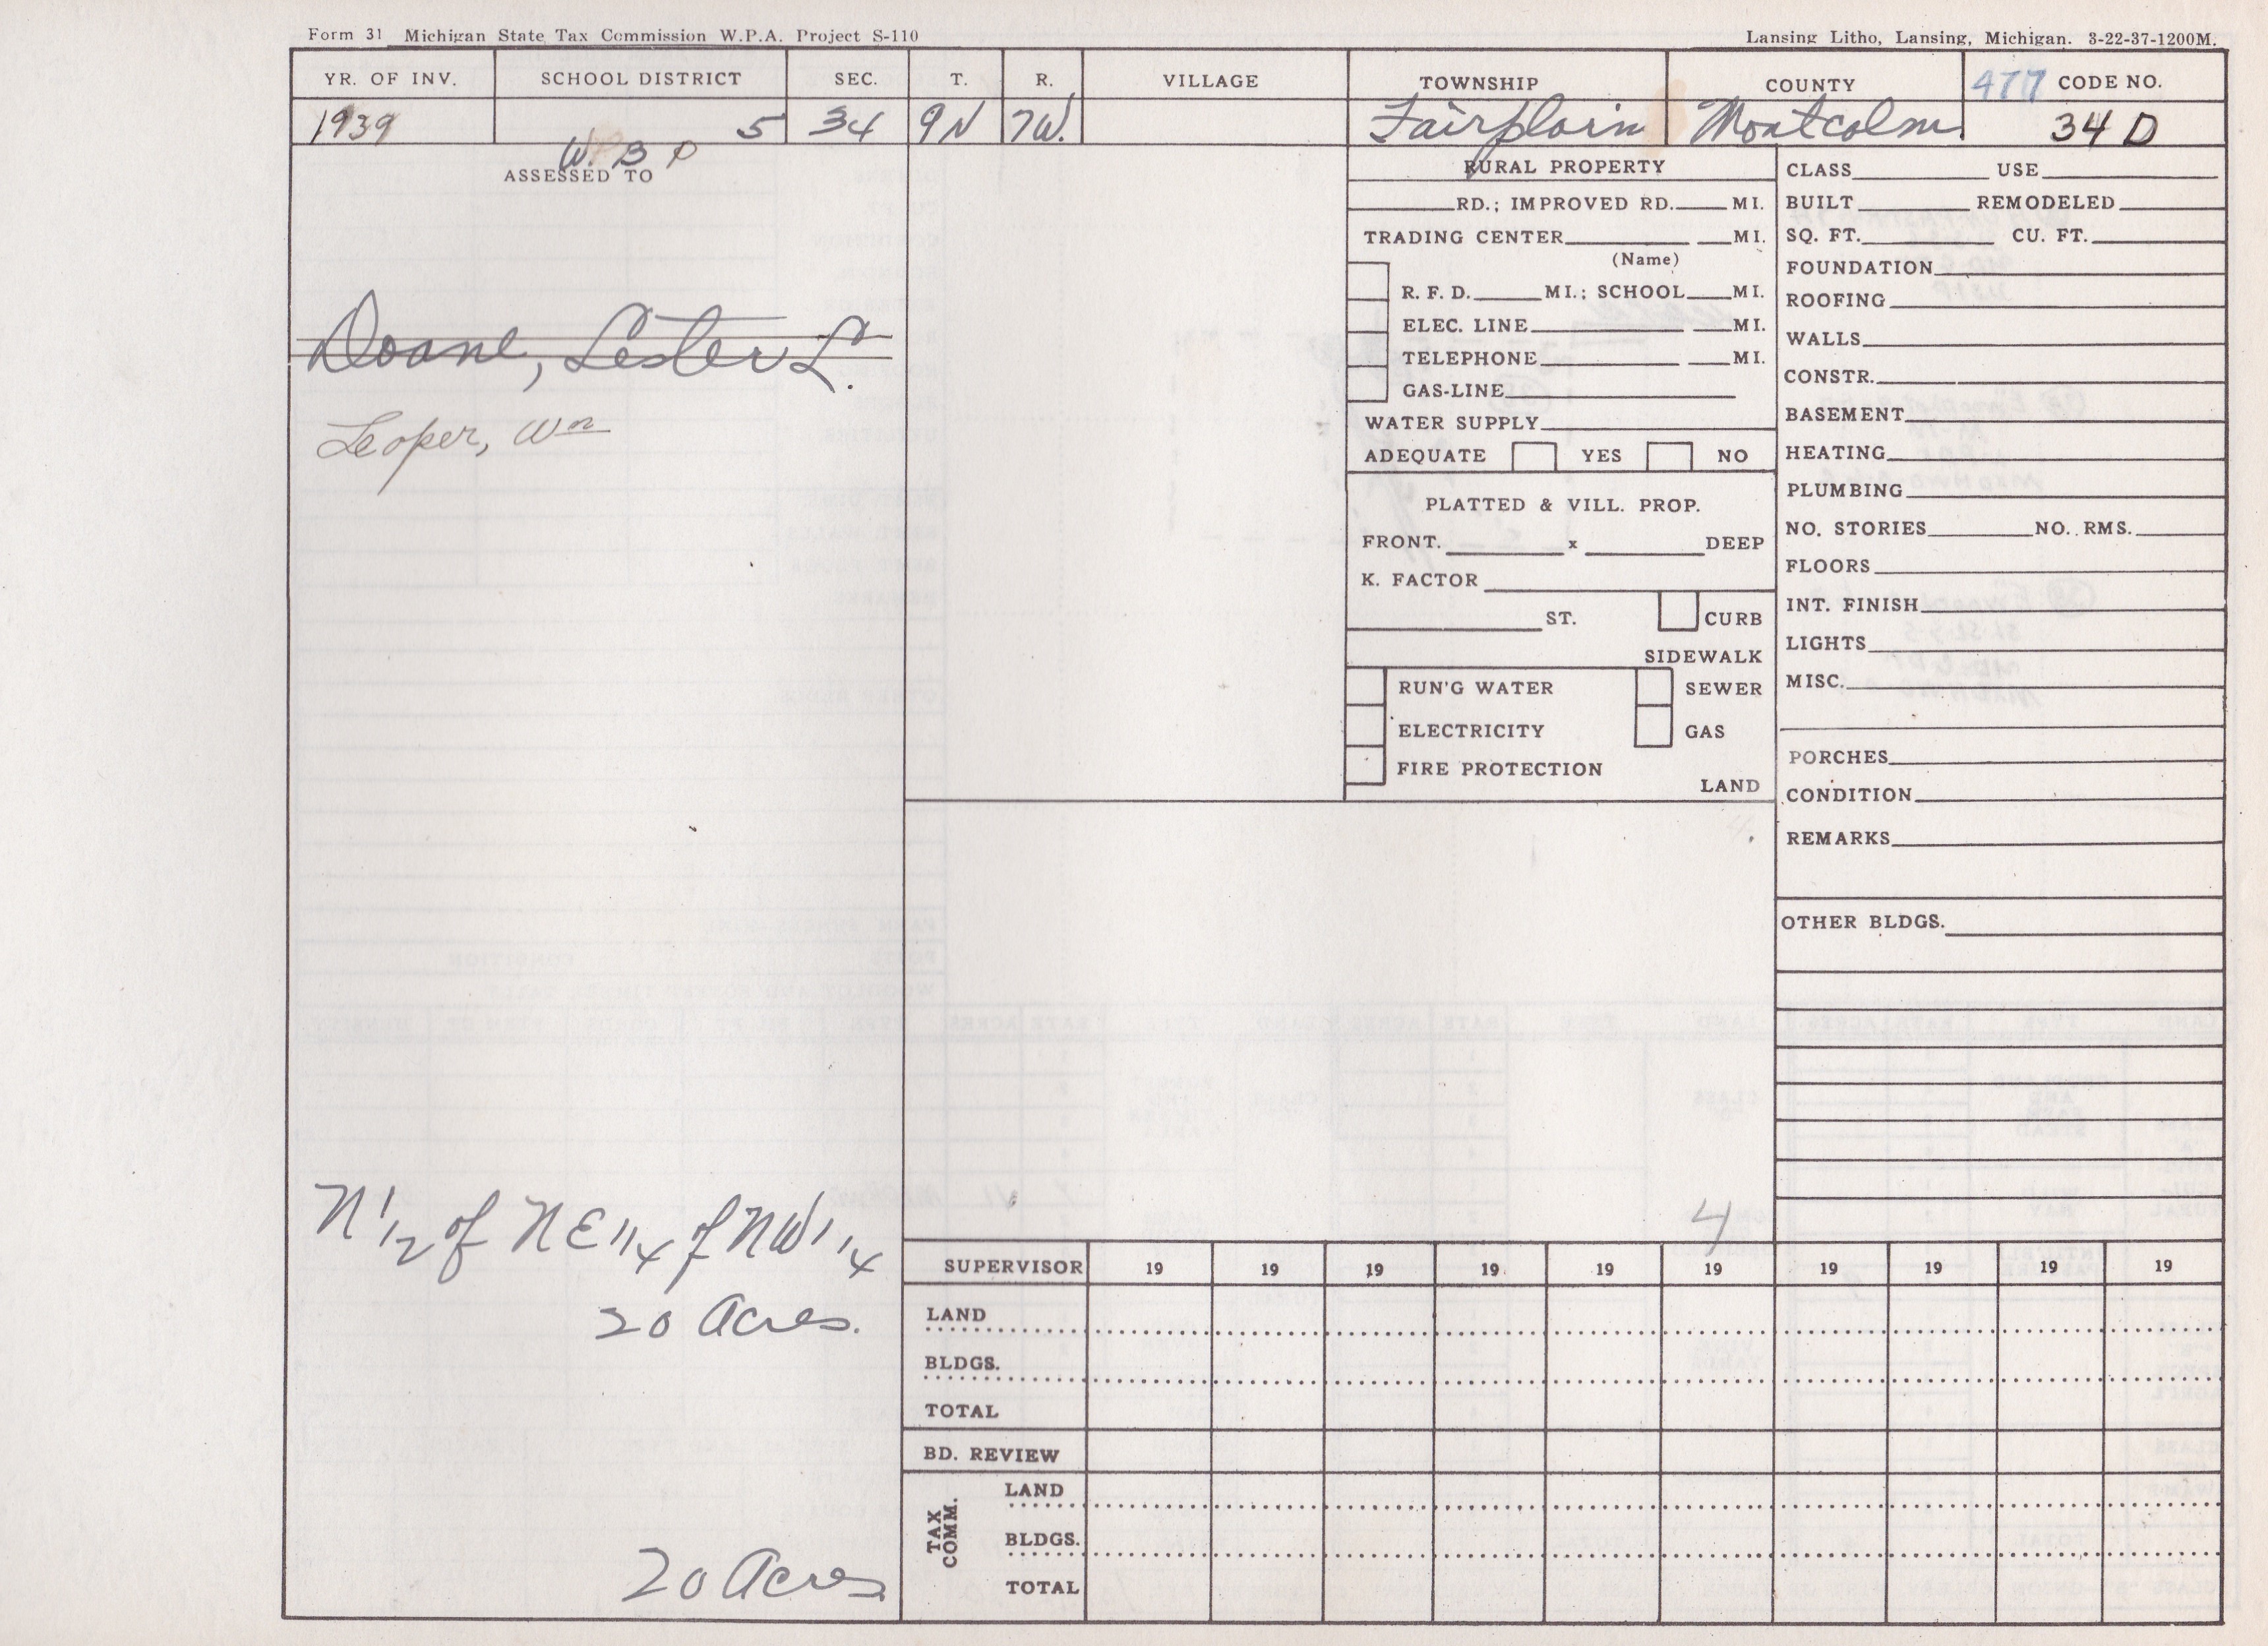 Form 31 Michigan State Tax Commission W.P.A. Project S-110
Lansing Litho, Lansing, Michigan. 3-22-37-1200M.
YR. OF INV. SCHOOL DISTRICT SEC. T. R. VILLAGE TOWNSHIP COUNTY 477 CODE NO.
1939 5 34 9N 7W. Fairplain Montcalm 34 D
W. B P
ASSESSED TO
Doane, Lester L.
Leoper, Wm
N 1/2 of NE 1/4 of NW 1/4
20 Acres.
20 Acres
RURAL PROPERTY
RD.; IMPROVED RD. MI.
TRADING CENTER MI.
(Name)
R. F. D. MI.; SCHOOL MI.
ELEC. LINE MI.
TELEPHONE MI.
GAS-LINE
WATER SUPPLY
ADEQUATE YES NO
PLATTED & VILL. PROP.
FRONT. x DEEP
K. FACTOR
ST. CURB
SIDEWALK
RUN'G WATER SEWER
ELECTRICITY GAS
FIRE PROTECTION
LAND
CLASS USE
BUILT REMODELED
SQ. FT. CU. FT.
FOUNDATION
ROOFING
WALLS
CONSTR.
BASEMENT
HEATING
PLUMBING
NO. STORIES NO. RMS.
FLOORS
INT. FINISH
LIGHTS
MISC.
PORCHES
CONDITION
REMARKS
OTHER BLDGS.
4
SUPERVISOR 19 19 19 19 19 19 19 19 19 19
LAND
BLDGS.
TOTAL
BD. REVIEW
TAX COMM.
LAND
BLDGS.
TOTAL